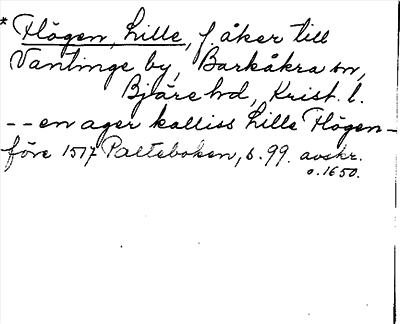 * Högen, Lille, f åker till
Vantinge by, Barkåkra sn,
Bjäre hd, Krist. l.
-- en ager kalliss Lille Högen --
före 1517 Palteboken, s. 99. avskr.
o. 1650.